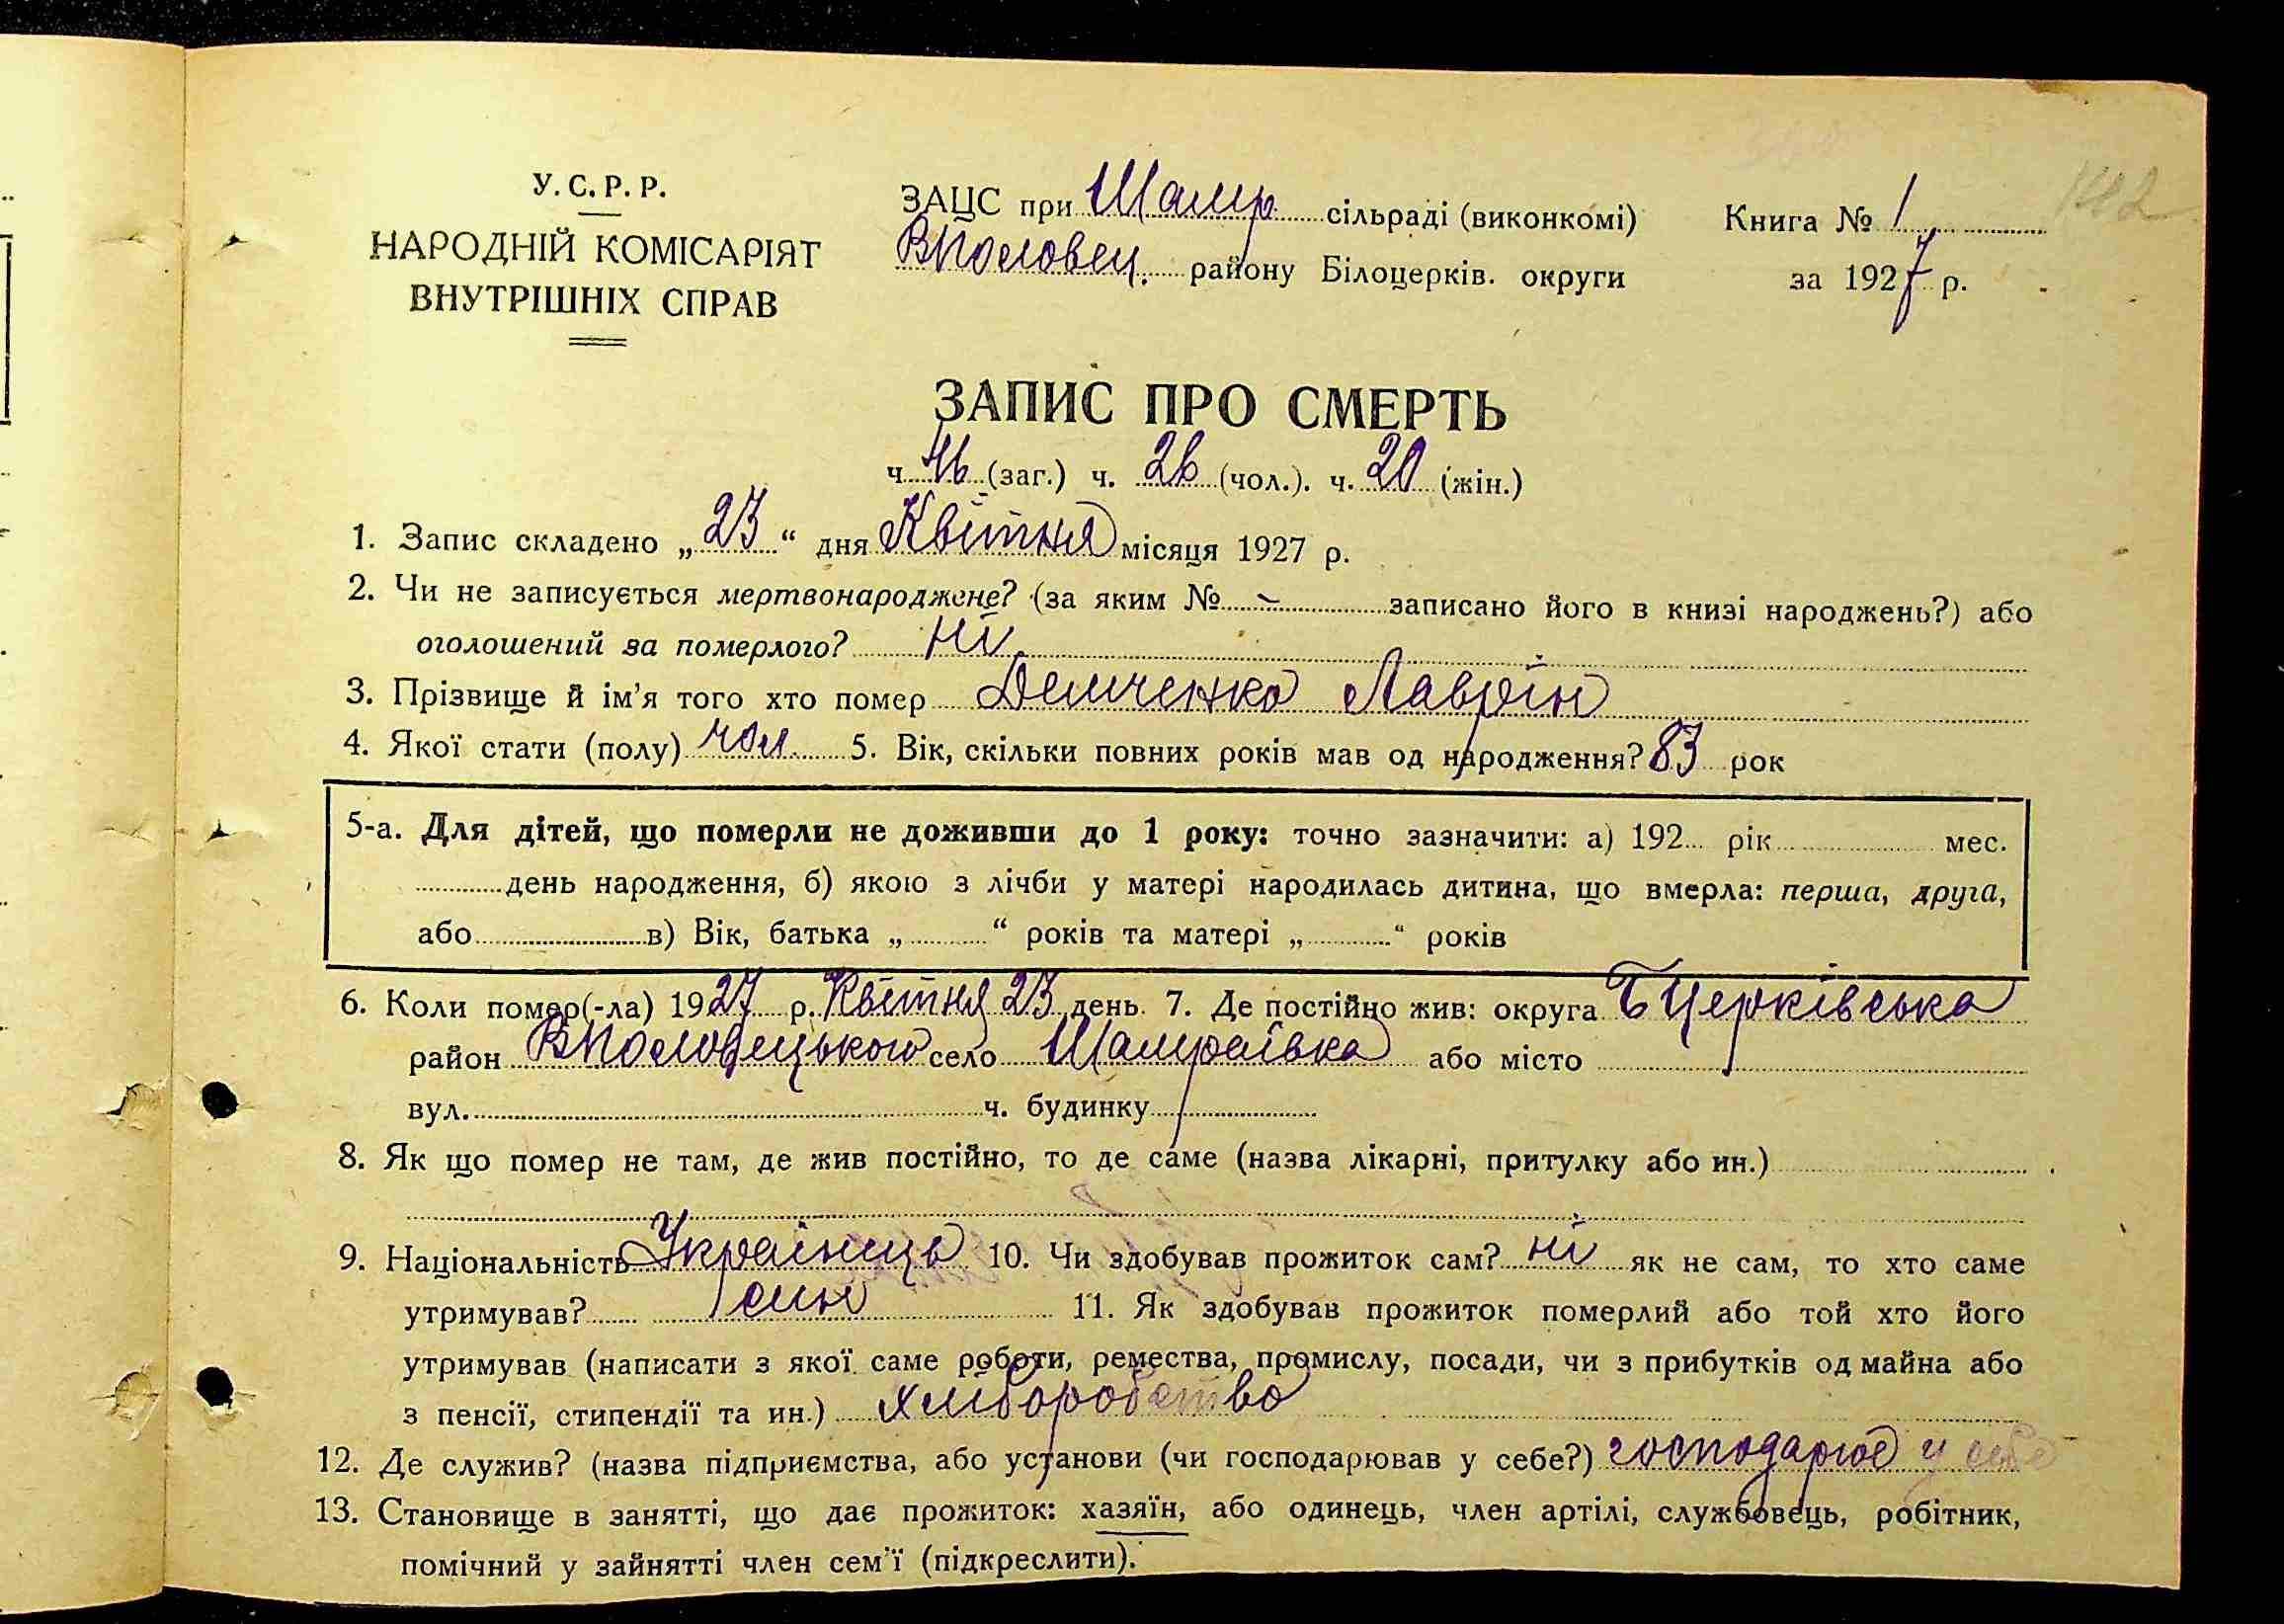 У. С. Р. Р.
НАРОДНІЙ КОМІСАРІЯТ
ВНУТРІШНІХ СПРАВ
ЗАЦС при Шамр сільраді (виконкомі)
ВПоловец. району Білоцерків. округи
Книга № 1
за 1927 р.
142
ЗАПИС ПРО СМЕРТЬ
ч. 46 (заг.) ч. 26 (чол.). ч. 20 (жін.)
1. Запис складено „23“ дня Квітня місяця 1927 р.
2. Чи не записується мертвонароджене? (за яким № - записано його в книзі народжень?) або
оголошений за померлого? ні
3. Прізвище й ім'я того хто помер Демченко Лаврін
4. Якої стати (полу) чол. 5. Вік, скільки повних років мав од народження? 83 рок
5-а. Для дітей, що померли не доживши до 1 року: точно зазначити: а) 192... рік мес.
день народження, б) якою з лічби у матері народилась дитина, що вмерла: перша, друга,
або в) Вік, батька „ “ років та матері „ “ років
6. Коли помер(-ла) 1927 р. Квітня 23 день. 7. Де постійно жив: округа БЦерківська
район ВПоловецького село Шамраївка або місто
вул. ч. будинку
8. Як що помер не там, де жив постійно, то де саме (назва лікарні, притулку або ин.)
9. Національність Українець 10. Чи здобував прожиток сам? ні як не сам, то хто саме
утримував? син 11. Як здобував прожиток померлий або той хто його
утримував (написати з якої саме роботи, ремества, промислу, посади, чи з прибутків од майна або
з пенсії, стипендії та ин.) хліборобство
12. Де служив? (назва підприємства, або установи (чи господарював у себе?) господарює у себе
13. Становище в занятті, що дає прожиток: хазяїн, або одинець, член артілі, службовець, робітник,
помічний у зайнятті член сем'ї (підкреслити).